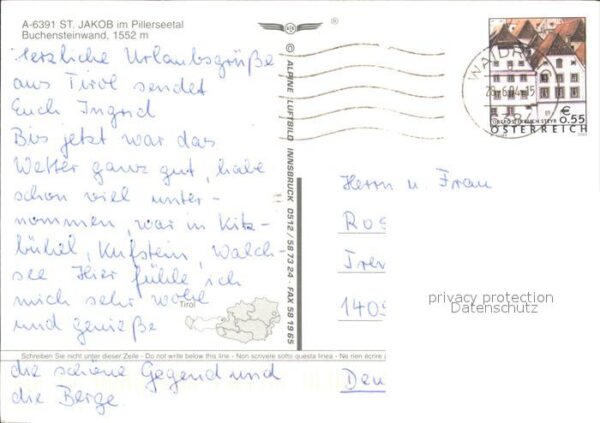 A-6391 ST. JAKOB im Pillerseetal
Buchensteinwand, 1552 m
Herzliche Urlaubsgrüße
aus Tirol sendet
Euch Ingrid
Bis jetzt war das
Wetter ganz gut, habe
schon viel unter-
nommen, war in Kitz-
bühel, Kufstein, Walch-
see Hier fühle ich
mich sehr wohl
und genieße
Tirol
Schreiben Sie nicht unter dieser Zeile - Do not write below this line - Non scrivere sotto questa linea - Ne rien écrire
die schöne Gegend und
die Berge.
© ALPINE LUFTBILD INNSBRUCK 0512 / 58 73 24 - FAX 58 19 65
®
WAIDR
28.6.04-15
6384
€ 0.55
OBERÖSTERREICH STEYR
ÖSTERREICH
Herrn u. Frau
Ros
Trev
1409
Deu
privacy protection
Datenschutz